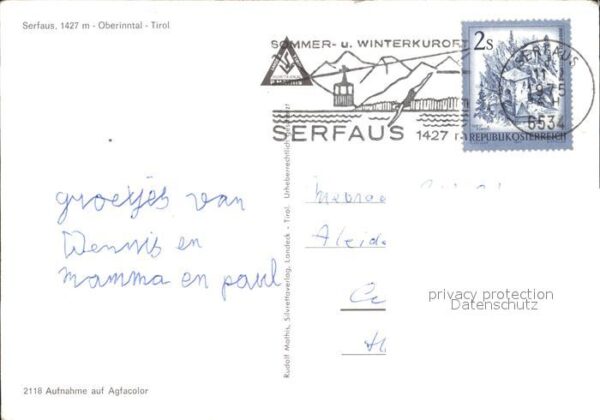 Serfaus, 1427 m - Oberinntal - Tirol
SOMMER- u. WINTERKURORT
SERFAUS 1427 m
2s
REPUBLIK ÖSTERREICH
SERFAUS
1975
6534
groetjes van
Dennis en
mamma en paul
Aleida
privacy protection
Datenschutz
Rudolf Mathis, Silvrettaverlag, Landeck - Tirol. Urheberrechtlich geschützt
2118 Aufnahme auf Agfacolor